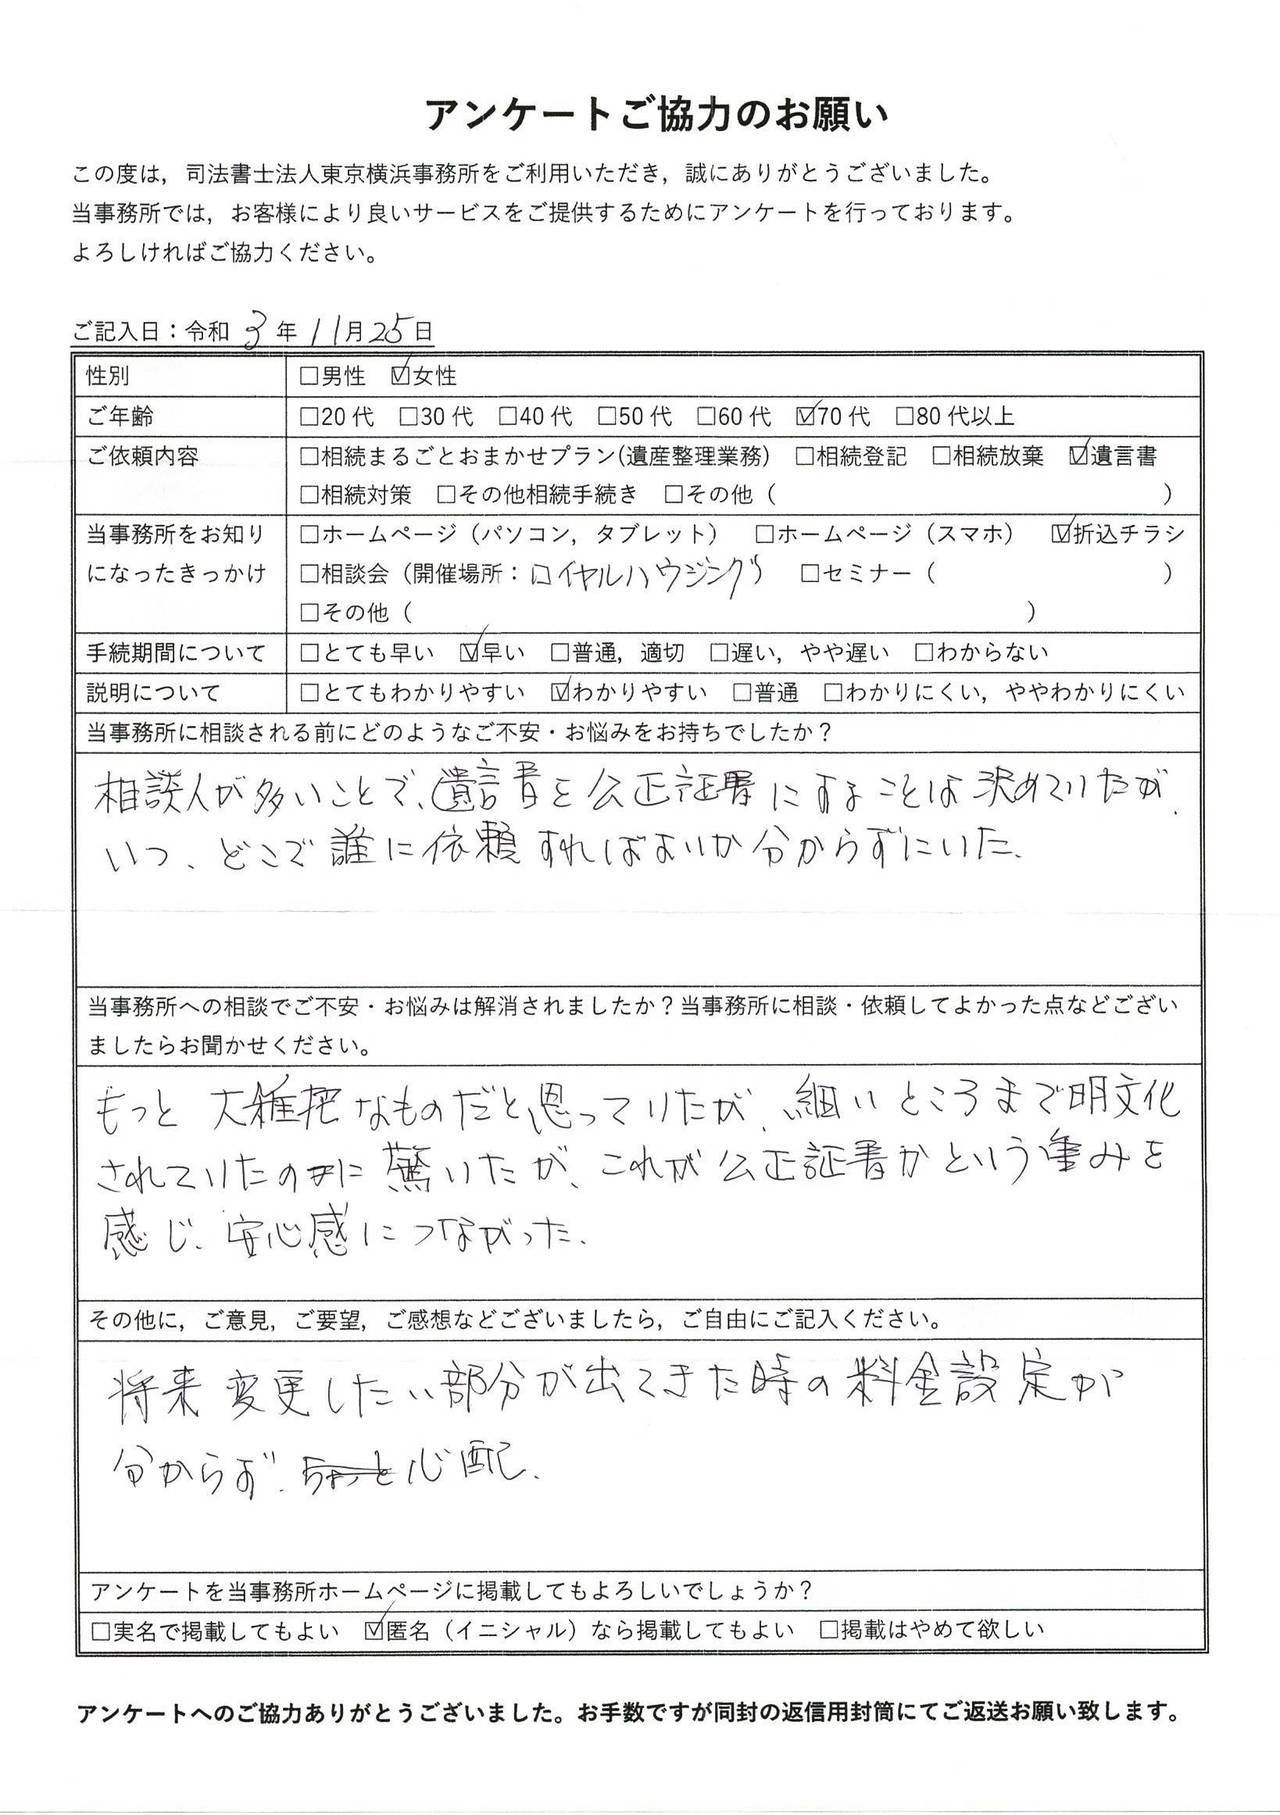 アンケートご協力のお願い
この度は，司法書士法人東京横浜事務所をご利用いただき，誠にありがとうございました。
当事務所では，お客様により良いサービスをご提供するためにアンケートを行っております。
よろしければご協力ください。
ご記入日：令和 3 年 11月25日
性別 □男性 ☑女性
ご年齢 □20代 □30代 □40代 □50代 □60代 ☑70代 □80代以上
ご依頼内容 □相続まるごとおまかせプラン(遺産整理業務) □相続登記 □相続放棄 ☑遺言書
□相続対策 □その他相続手続き □その他（ ）
当事務所をお知り □ホームページ（パソコン，タブレット） □ホームページ（スマホ） ☑折込チラシ
になったきっかけ □相談会（開催場所：ロイヤルハウジング） □セミナー（ ）
□その他（ ）
手続期間について □とても早い ☑早い □普通，適切 □遅い，やや遅い □わからない
説明について □とてもわかりやすい ☑わかりやすい □普通 □わかりにくい，ややわかりにくい
当事務所に相談される前にどのようなご不安・お悩みをお持ちでしたか？
相談人が多いことで、遺言書を公正証書にすることは決めていたが、
いつ、どこで誰に依頼すればよいか分からずにいた、
当事務所への相談でご不安・お悩みは解消されましたか？当事務所に相談・依頼してよかった点などござい
ましたらお聞かせください。
もっと大雑把なものだと思っていたが、細いところまで明文化
されていたのに驚いたが、これが公正証書かという重みを
感じ、安心感につながった、
その他に，ご意見，ご要望，ご感想などございましたら，ご自由にご記入ください。
将来変更したい部分が出てきた時の料金設定が
分からず、ちょっと心配、
アンケートを当事務所ホームページに掲載してもよろしいでしょうか？
□実名で掲載してもよい ☑匿名（イニシャル）なら掲載してもよい □掲載はやめて欲しい
アンケートへのご協力ありがとうございました。お手数ですが同封の返信用封筒にてご返送お願い致します。